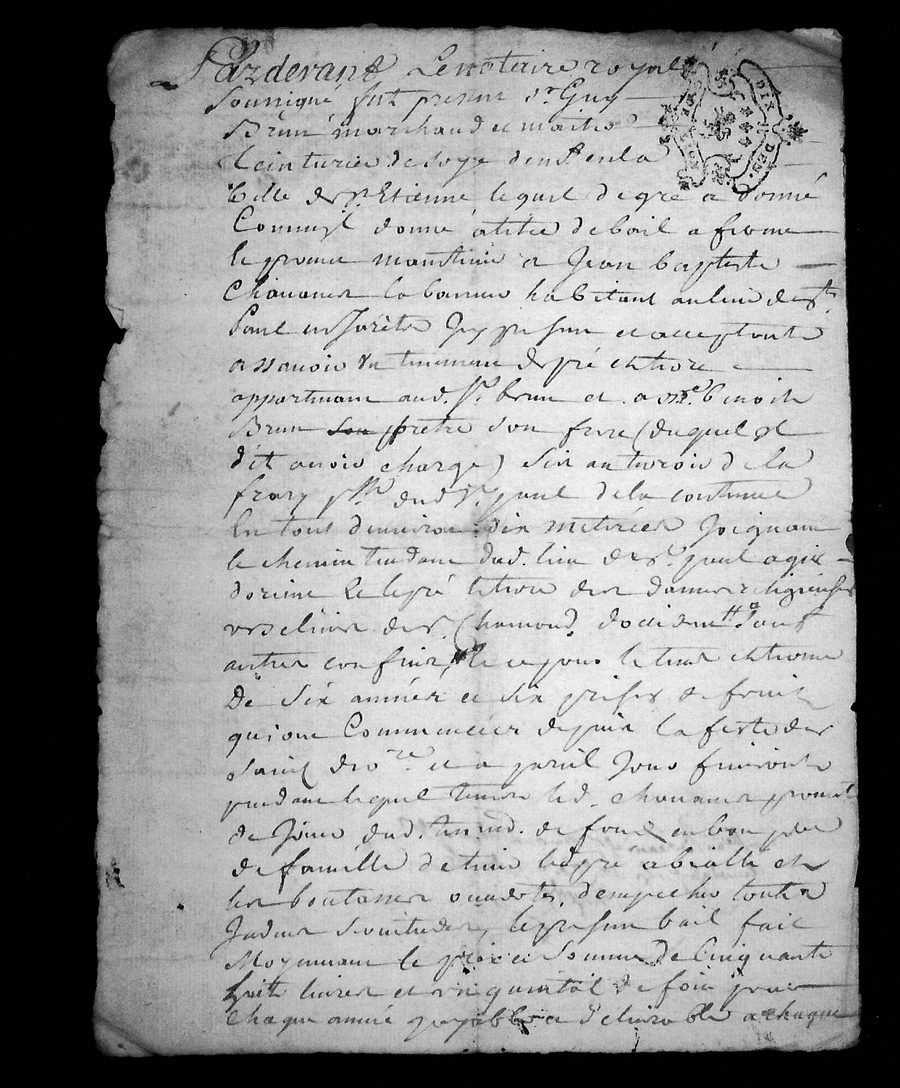 Pardevant Le notaire royal
Soussigné, fut present Sr Guy
Brun marchand et maitre
teinturier de soye demt en la
Ville de St Etienne lequel de gré a donné
Comme il donne a titre de bail a ferme
le prome maintenir a Jean baptiste
Chavanes habitant au lieu de St
Paul en Jarete Icy present et acceptant
a sçavoir un tenement de pré et
appartenant aud. Sr. brun et a Mre. benoist
Brun prêtre son frere (duquel Il
dit avoir charge) sis au terroir de la
frary psse dud St paul de la contenue
En tout d'environ six metérées Joignant
le chemin tendant dud. lieu de St. paul a
dorient le pré des dames religieuses
urselines de St. Chamond, doccident Sauf
autres confins, Et ce pour le tems et terme
De six années et six prises de fruits
qui ont Commencées depuis la feste des
Saint dre et a pareil Jour finiront
pendant lequel tems led. Chavanes promet
de Jouir dud. tenemt. de fond en bon père
de famille detenir le pré et
les ou, d'empecher toutes
Indues Servitudes, le present bail fait
Moyennant le prix et Somme de Cinquante
huit livres et un quintal de foin pour
Chaque année payable a chaque
DIX DEN.